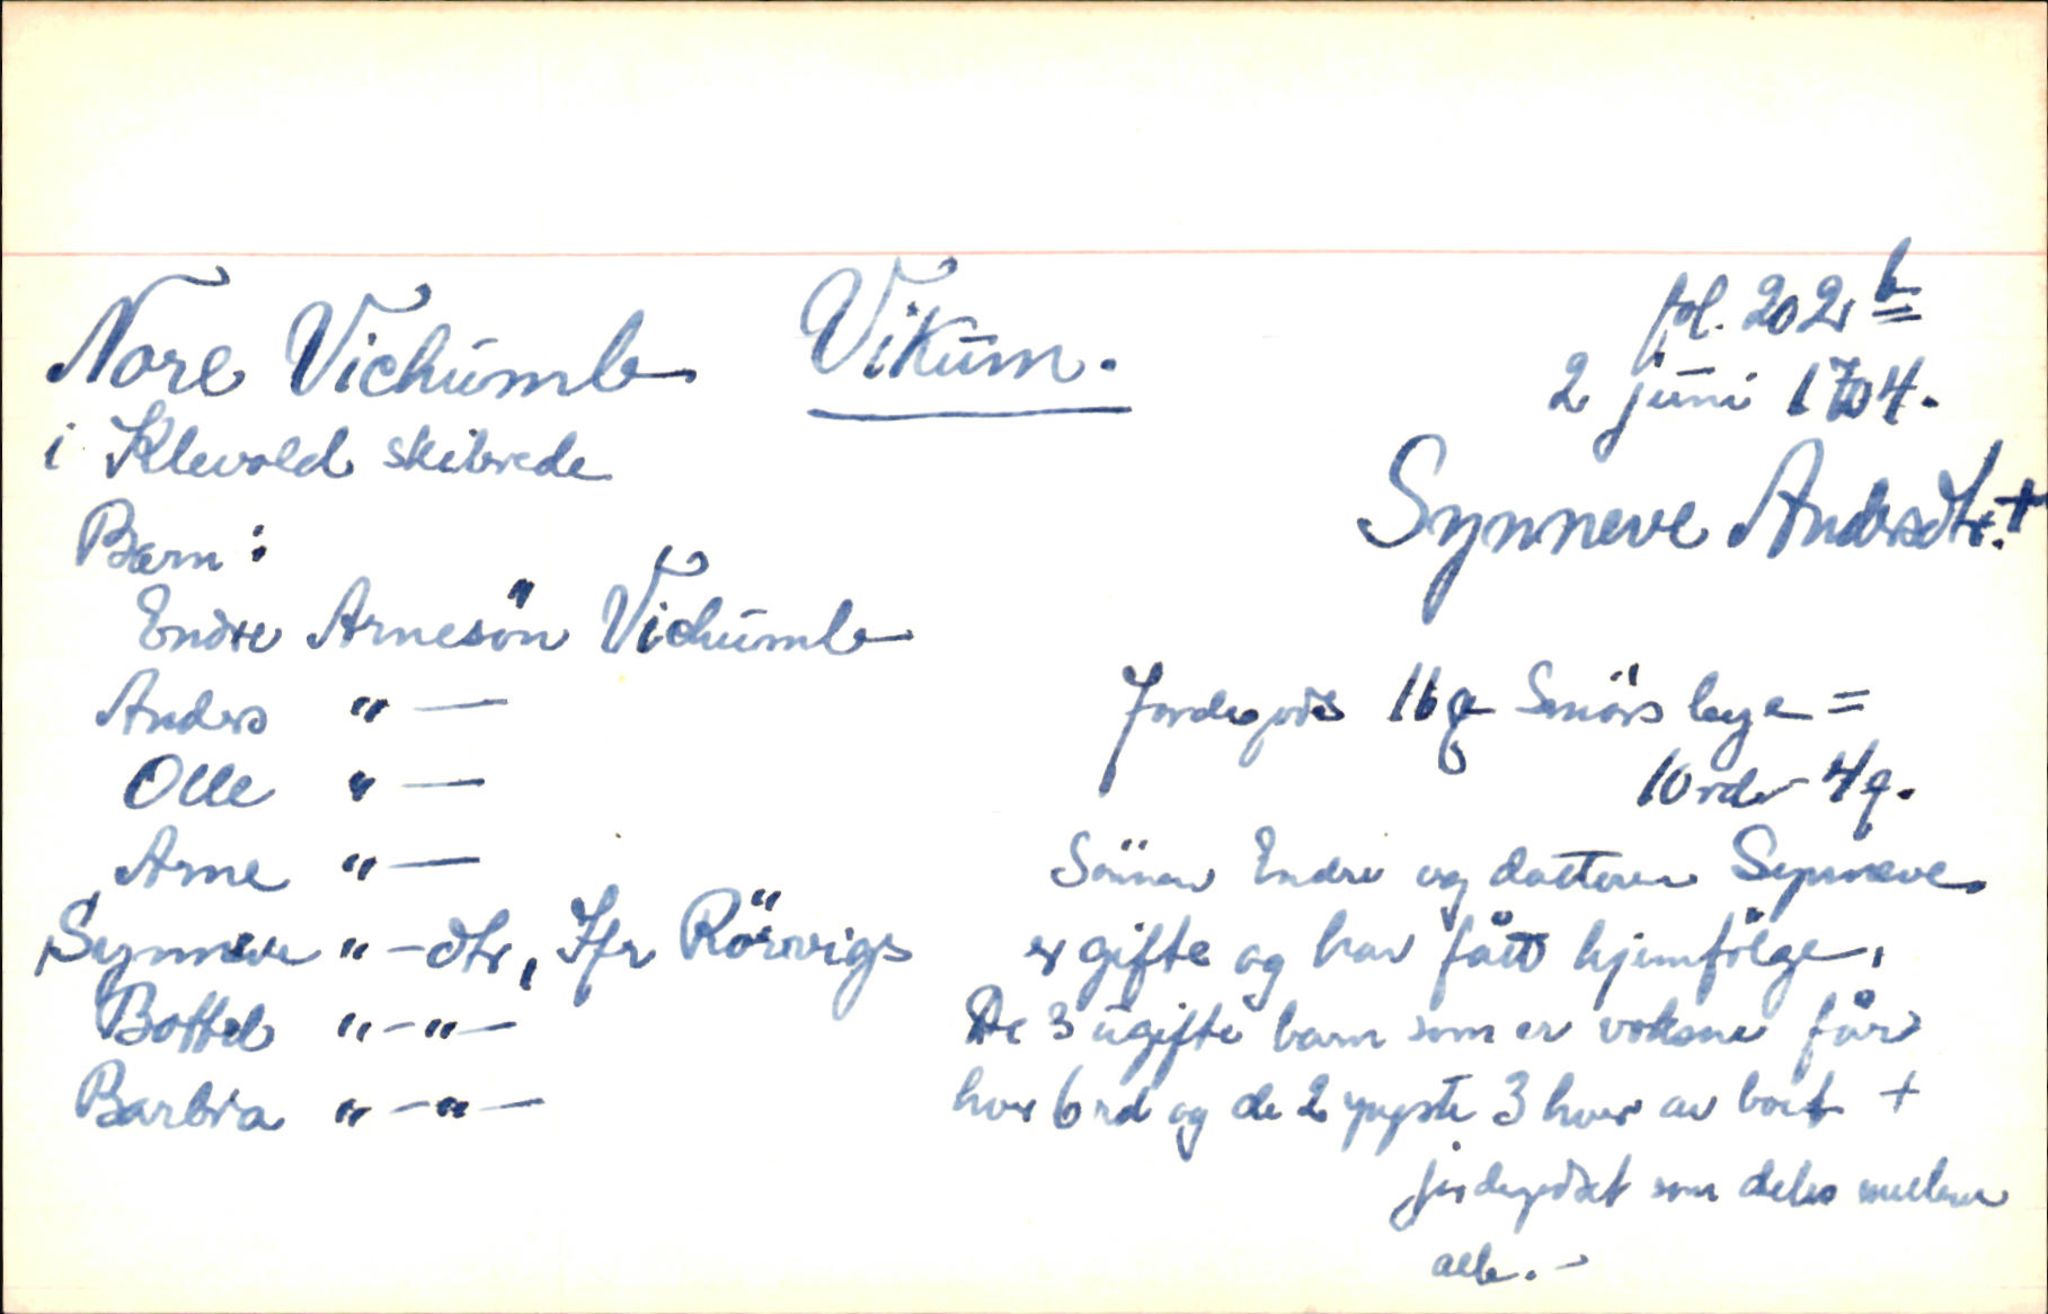 Nore Vichumb Vikum. fol. 202 b
2 juni 1704.
i Klevold skibrede
Synneve Andersdtr. +
Barn:
Endre Arnesön Vichumb
Anders " —
Olle " —
Arne " —
Synneve " - dtr, Ifr Rörvigs
Bottel " - " —
Barbra " - " —
Jordegods 16 Smörs leye =
10 rdr 4
Sönnen Endre og datteren Synneve
er gifte og har fått hjemfölge,
De 3 ugifte barn som er voksne får
hver 6 rd og de 2 yngste 3 hver av boet +
jordegodset som deles mellem
alle. -